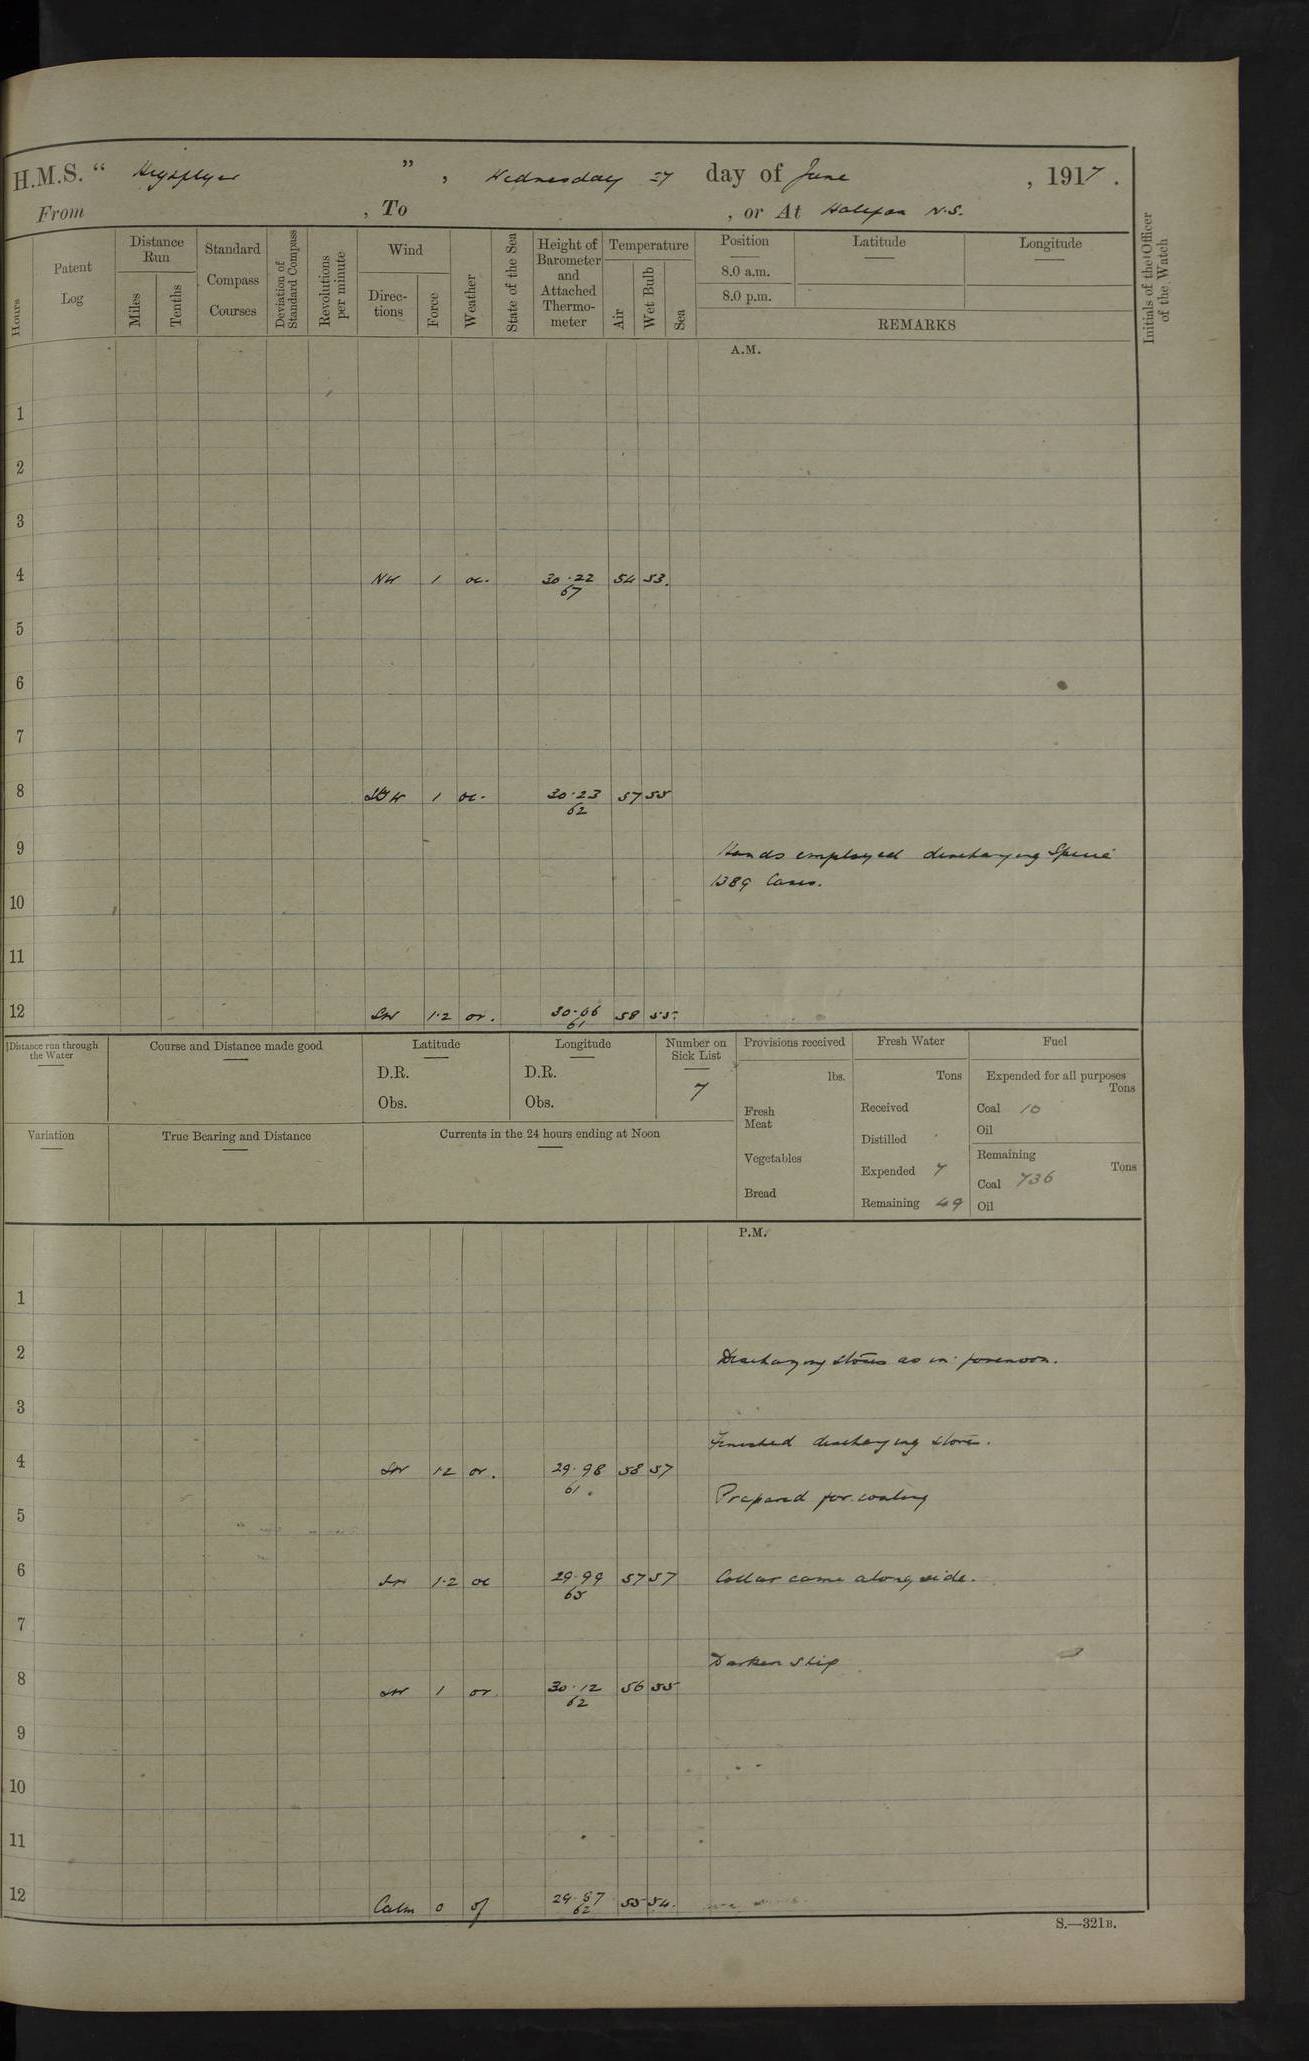 H.M.S. " Highflyer ", Wednesday 27 day of June, 1917.
From , To , or At Halifax N.S.
Hours
Patent Log
Distance Run
Miles
Tenths
Standard Compass Courses
Deviation of Standard Compass
Revolutions per minute
Wind
Directions
Force
Weather
State of the Sea
Height of Barometer and Attached Thermometer
Temperature
Air
Wet Bulb
Sea
Position
8.0 a.m.
8.0 p.m.
Latitude
Longitude
REMARKS
Initials of the Officer of the Watch
A.M.
1
2
3
4 NW 1 oc. 30.22 67 54 53.
5
6
7
8 1 oc. 30.23 62 57 55
9 Hands employed discharging Specie
1389 Cases.
10
11
12 SW 1.2 or. 30.06 61 58 55.
Distance run through the Water
Course and Distance made good
Latitude
D.R.
Obs.
Longitude
D.R.
Obs.
Number on Sick List
7
Provisions received
lbs.
Fresh Meat
Vegetables
Bread
Fresh Water
Tons
Received
Distilled
Expended 7
Remaining 49
Fuel
Expended for all purposes
Tons
Coal 10
Oil
Remaining
Tons
Coal 736
Oil
Variation
True Bearing and Distance
Currents in the 24 hours ending at Noon
P.M.
1
2 Discharging stores as in forenoon.
3
Finished discharging stores.
4 SW 1.2 or. 29.98 61. 58 57
Prepared for coaling
5
6 SW 1.2 oc 29.99 63 57 57 Collier came alongside.
7
Darken Ship
8 SW 1 or. 30.12 62 56 55
9
10
11
12 Calm 0 of 62 55 54.
S.—321B.